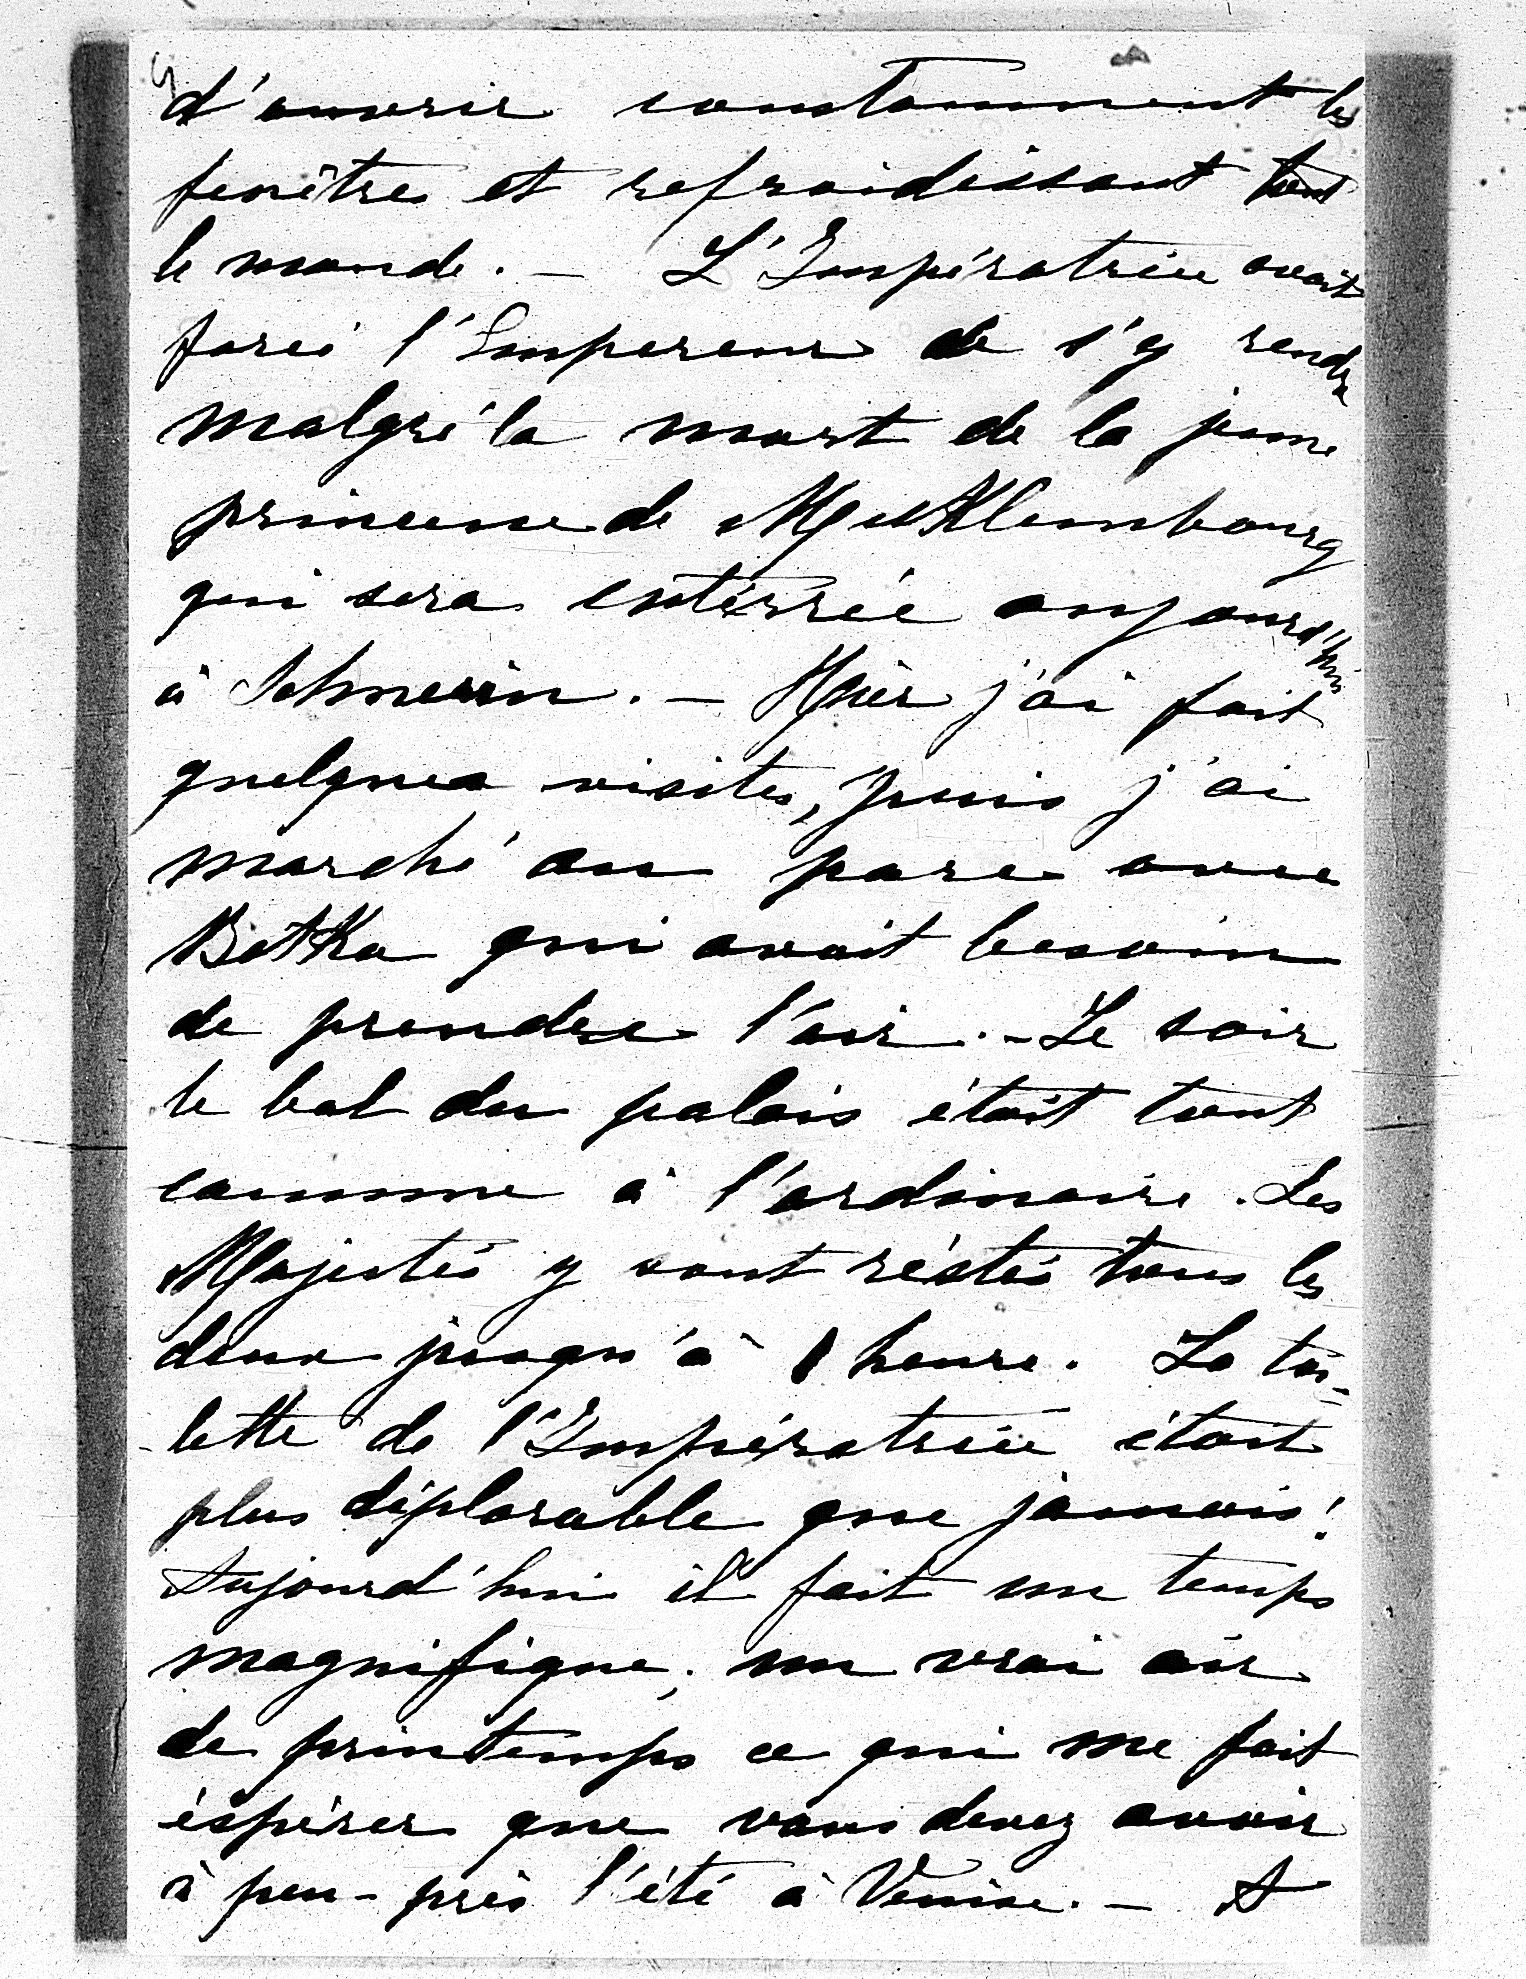 d'ouvrir constamment les
fenêtres et refroidissant tout
le monde. — L'Impératrice avait
forcé l'Empereur de s'y rendre
malgré la mort de la jeune
princesse de Mecklembourg
qui sera entérrée aujourd'hui
à Schwerin. — Hier j'ai fait
quelques visites, puis j'ai
marché au parc avec
Botka qui avait besoin
de prendre l'air. — Le soir
le bal du palais était tout
comme à l'ordinaire. Les
Majestés y sont réstés tous les
deux jusqu'à 1 heure. La toi-
lette de l'Impératrice était
plus déplorable que jamais!
Aujourd'hui il fait un temps
magnifique, un vrai air
de printemps ce qui me fait
éspérer que vous devez avoir
à peu-près l'été à Venise. — A